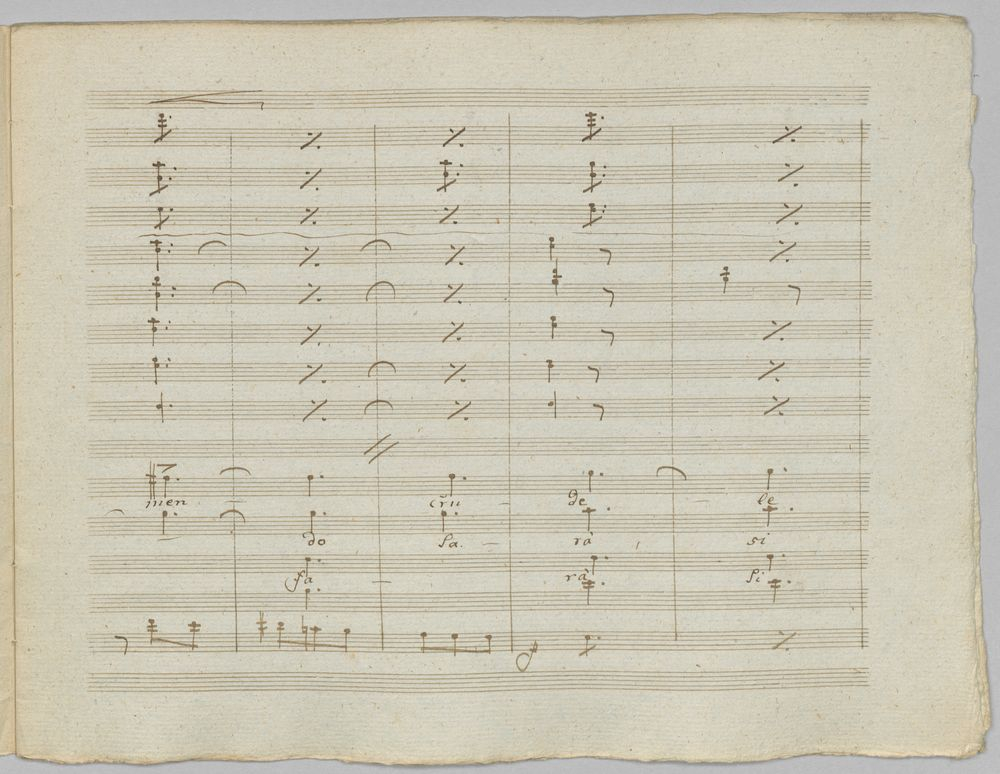 men - - cru de - - le
do sa. - rà , si
fa - rà si
f